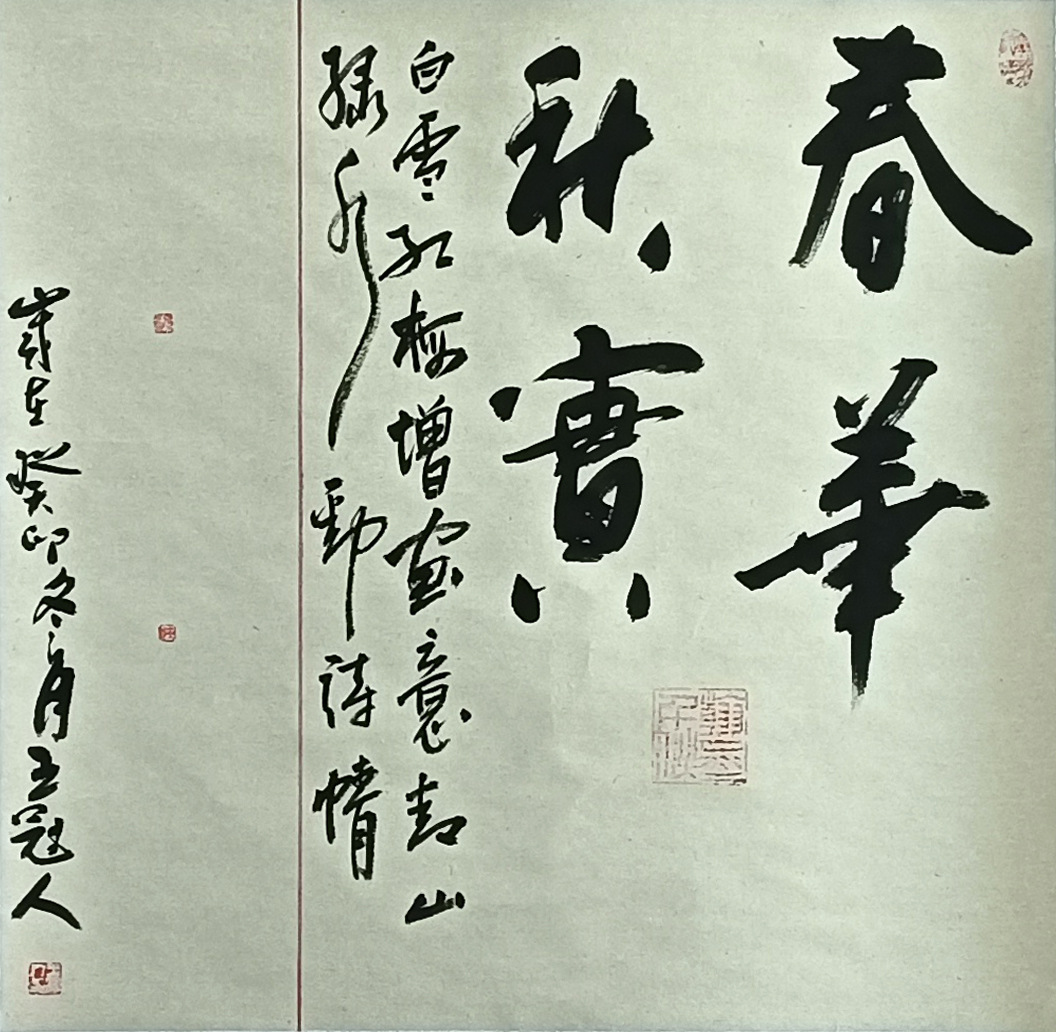 春華
秋實
白雪红梅增画意青山
緑水動詩情
歲在癸卯冬月王冠人